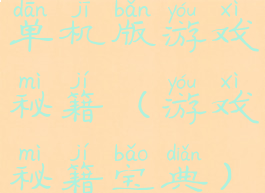 dān jī bǎn yóu xì
单机版游戏
mì jí yóu xì
秘籍（游戏
mì jí bǎo diǎn
秘籍宝典）